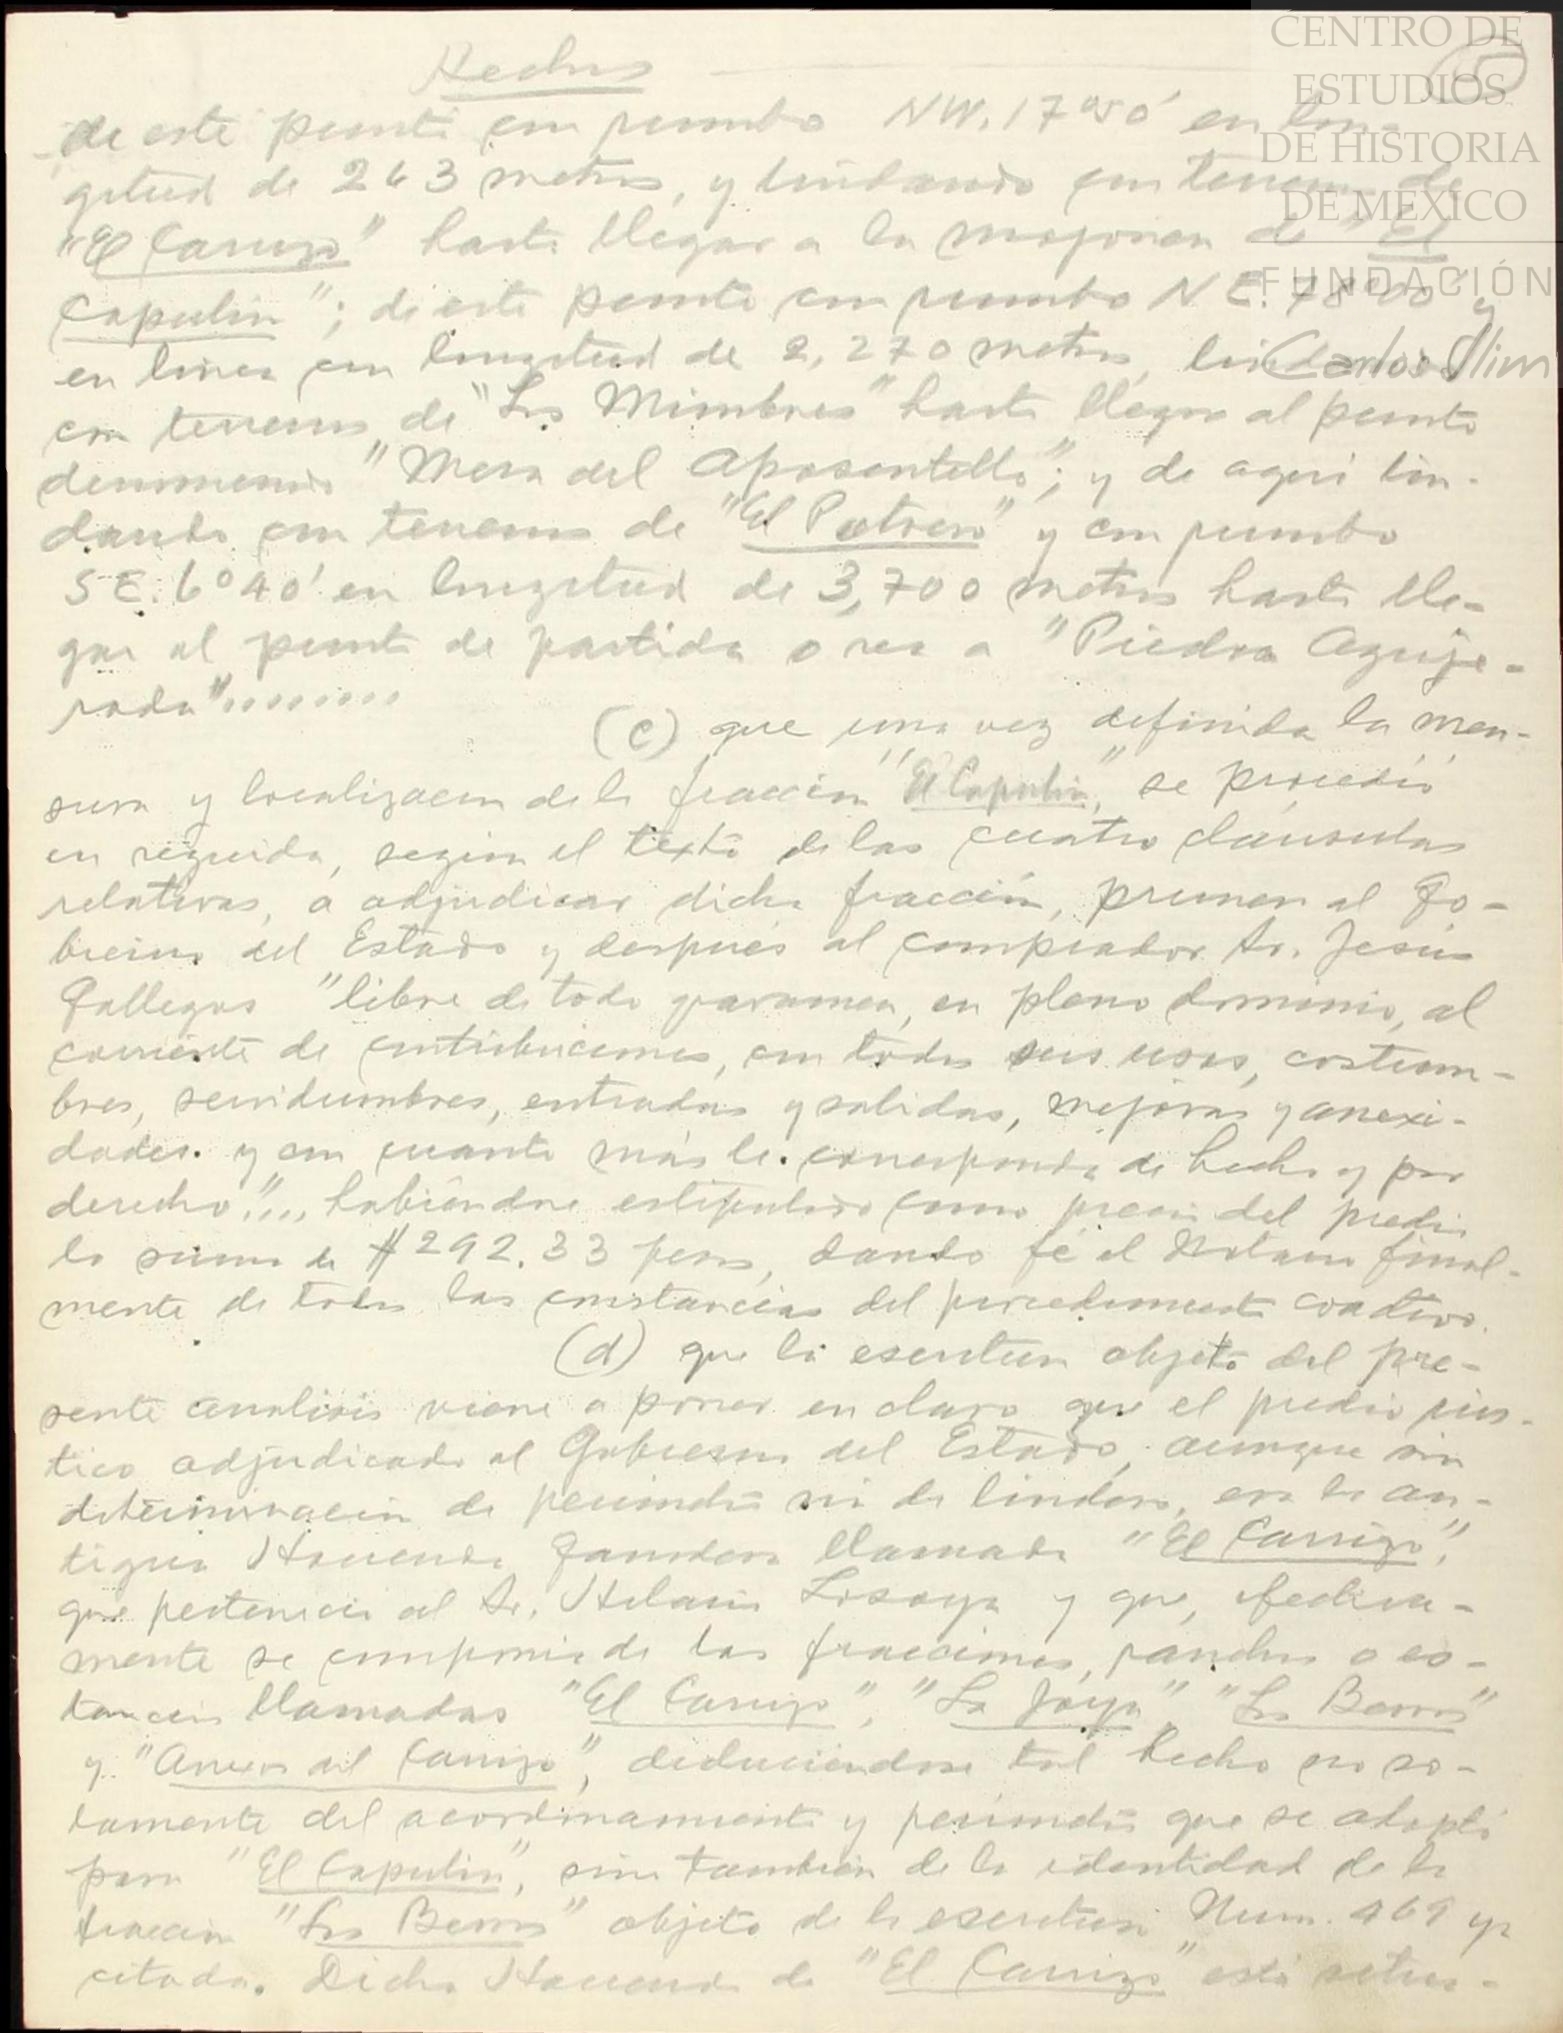 CENTRO DE
ESTUDIOS
DE HISTORIA
DE MÉXICO
FUNDACIÓN
Carlos Slim
Hechos
de este punto con rumbo NW. 17°50' en lon-
gitud de 263 metros, y lindando con terrenos de
"El Carrizo" hasta llegar a la mojonera de "El
Capulín"; de este punto con rumbo N.E. 78°00' y
en linea con longitud de 2,270 metros,
con terrenos de "Los Mimbres" hasta llegar al punto
denominado "Mesa del Aposentillo"; y de aqui lin-
dando con terrenos de "El Potrero" y con rumbo
SE. 6°40' en longitud de 3,700 metros hasta lle-
gar al punto de partida o sea a "Piedra Aguje-
rada"........
(c) que una vez definida la men-
sura y localizacion de la fracción "El Capulin", se procedió
en seguida, según el texto de las cuatro cláusulas
relativas, a adjudicar dicha fracción, primero al Go-
bierno del Estado y después al comprador Sr. Jesús
Gallegos "libre de todo gravamen, en pleno dominio, al
corriente de contribuciones, con todos sus usos, costum-
bres, servidumbres, entradas y salidas, mejoras y anexi-
dades. y con cuanto más le corresponda de hecho y por
derecho"... habiéndose estipulado como precio del predio
la suma de $292.33 pesos, dando fé el Notario final-
mente de todas las constancias del procedimiento coactivo.
(d) que la escritura objeto del pre-
sente analisis viene a poner en claro que el predio rús-
tico adjudicado al Gobierno del Estado, aunque sin
determinación de perimetro ni de linderos, era la an-
tigua Hacienda ganadera llamada "El Carrizo",
que pertenecia al Sr. Hilario Losoya y que, efectiva-
mente se componia de las fracciones, ranchos o es-
tancias llamadas "El Carrizo", "La Joya", "Los Berros"
y "Anexos del Carrizo", deduciendose tal hecho no so-
lamente del acordinamiento y perimetro que se adoptó
para "El Capulin", sino tambien de la identidad de la
fraccion "Los Berros" objeto de la escritura Num. 469 ya
citada. Dicha Hacienda de "El Carrizo" está situa-